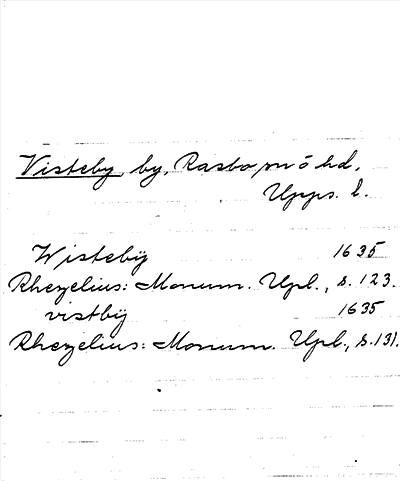 Visteby, by, Rasbo sn o hd,
Upps. l.
Wistebÿ 1635
Rhezelius: Monum. Upl., s. 123.
vistbÿ 1635
Rhezelius: Monum. Upl., s. 131.